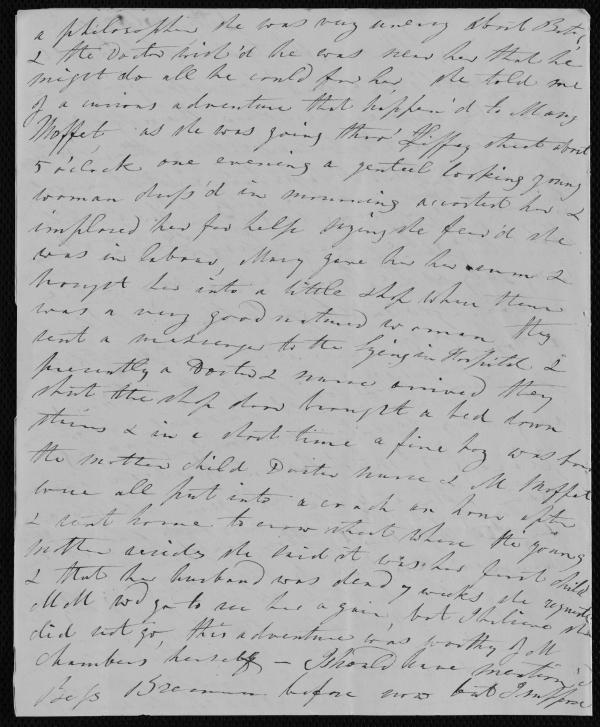 a philosopher she was very uneasy about Bets
& the Doctor wish'd he was near her that he
might do all he could for her she told me
of a curious adventure that happen'd to Mary
Moffet, as she was going thro' Liffey street about
5 o'clock one evening a genteel looking young
woman dress'd in mourning accosted her &
implored her for help saying she fear'd she
was in labour, Mary gave her her arm &
brought her into a little shop where there
was a very good natured woman they
sent a messenger to the Lying in Hospital &
presently a Doctor & nurse arrived they
shut the shop door brought a bed down
stairs & in a short time a fine boy was born
the mother child Doctor nurse & M Moffet
were all put into a coach an hour after
& sent home to crow street where the young
mother resides she said it was her first child
& that her husband was dead 7 weeks she requested
MM wd go to see her again, but I believe she
did not go, this adventure was worthy of M
Chambers herself — I should have mention'd
Bess before now but I suppose